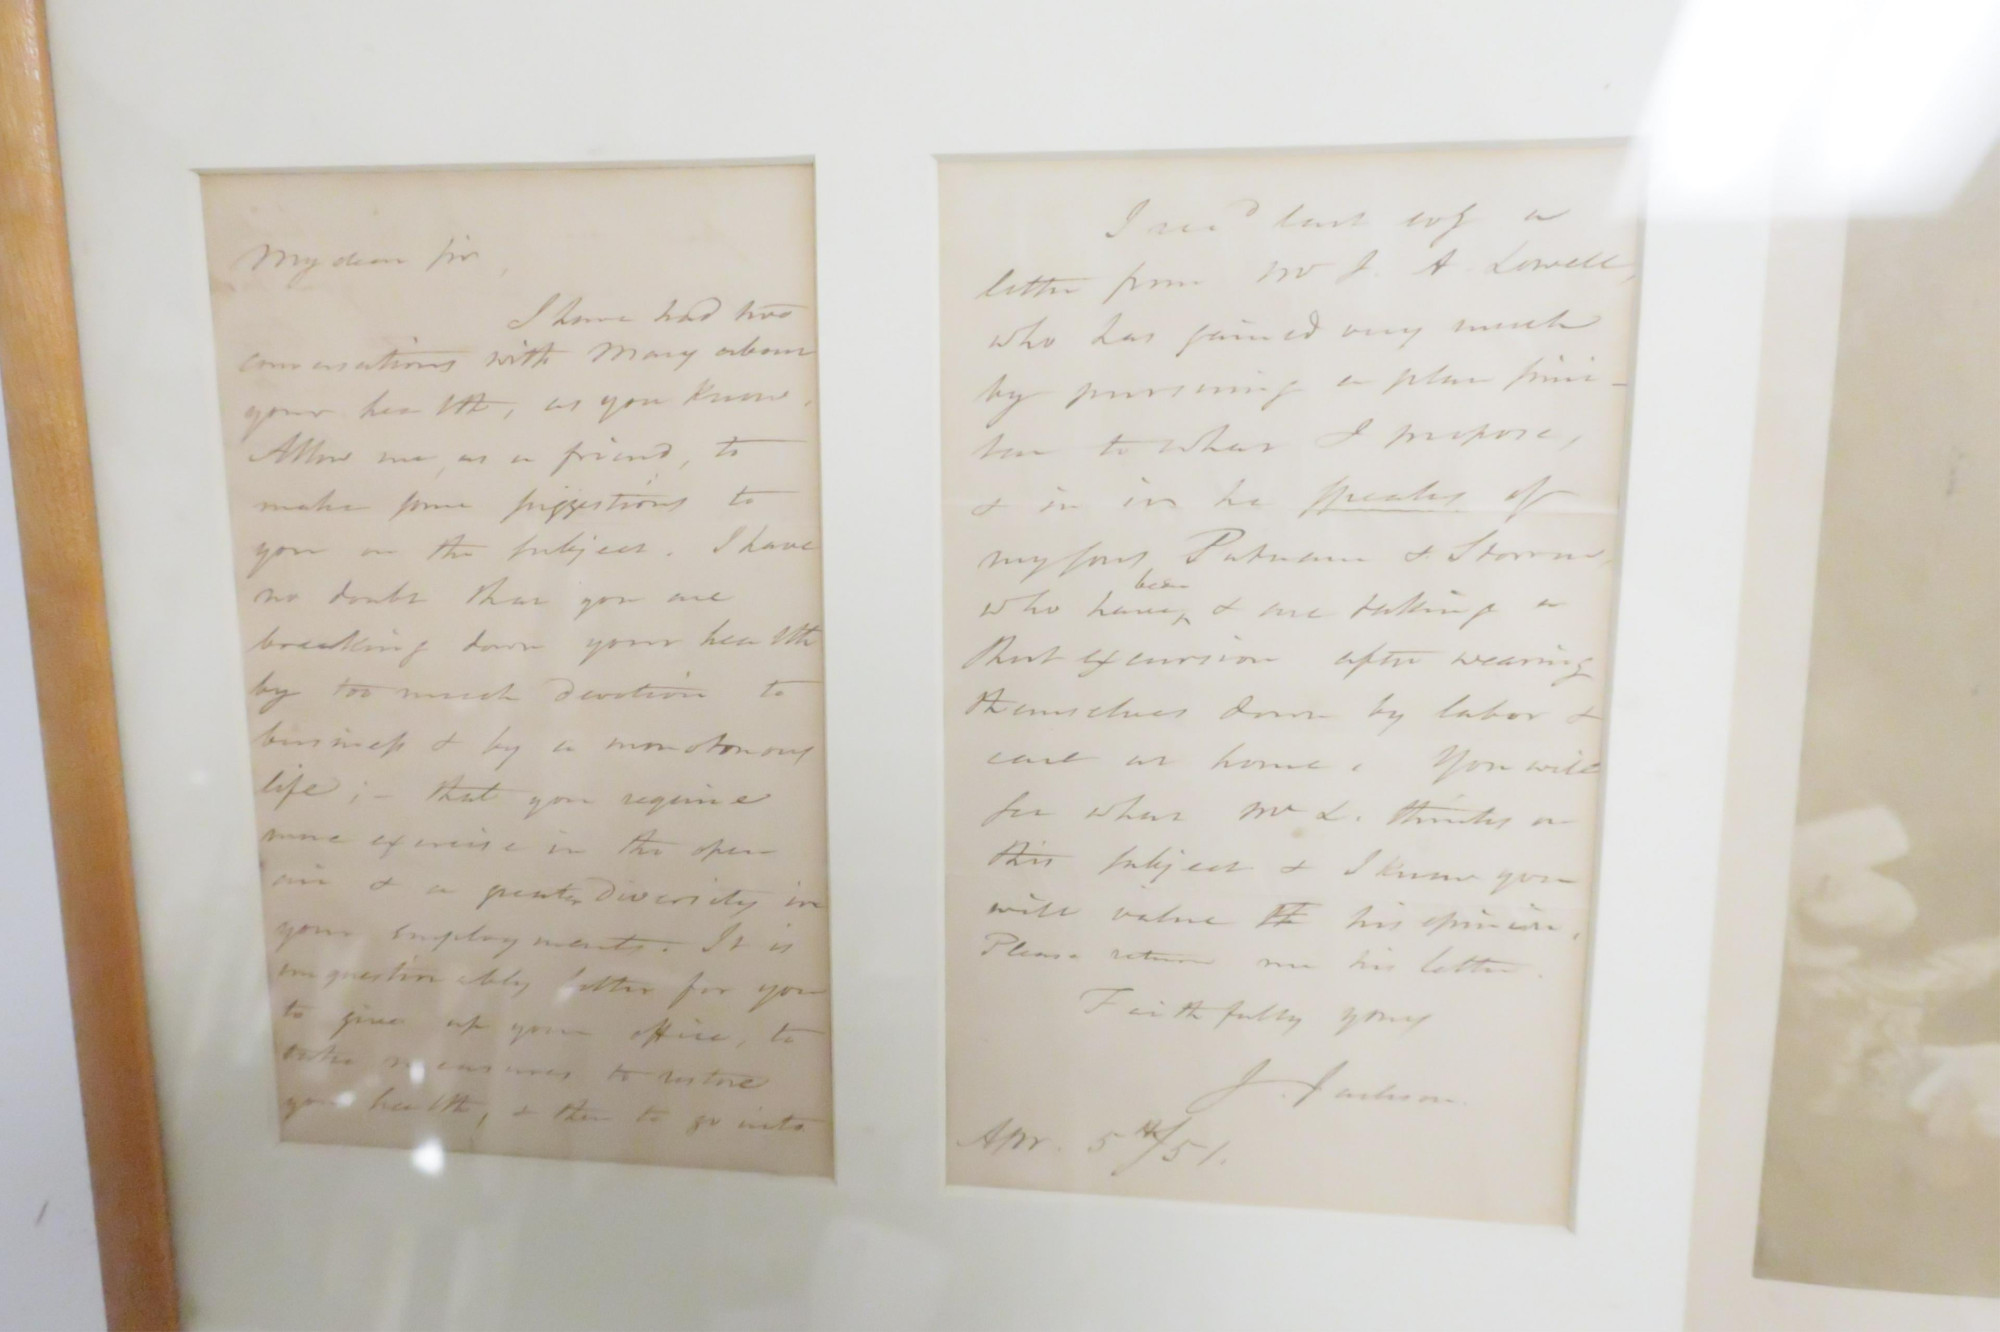 My dear Sir,
I have had two
conversations with Mary about
your health, as you know.
Allow me, as a friend, to
make some suggestions to
you on the subject. I have
no doubt that you are
breaking down your health
by too much devotion to
business & by a monotonous
life; – that you require
more exercise in the open
air & a greater diversity in
your employments. It is
unquestionably better for you
to give up your office, to
take measures to restore
your health, & then to go into
I rec'd last evg a
letter from Mr J. A. Lowell,
who has gained very much
by pursuing a plan simi-
lar to what I propose,
& in it he speaks of
my sons, Putnam & Storrow,
who have been & are taking a
short excursion after wearing
themselves down by labor &
care at home. You will
see what Mr L. thinks on
this subject & I know you
will value his opinion.
Please return me his letter.
Faithfully yours
J. Jackson.
Apr. 5th/51.